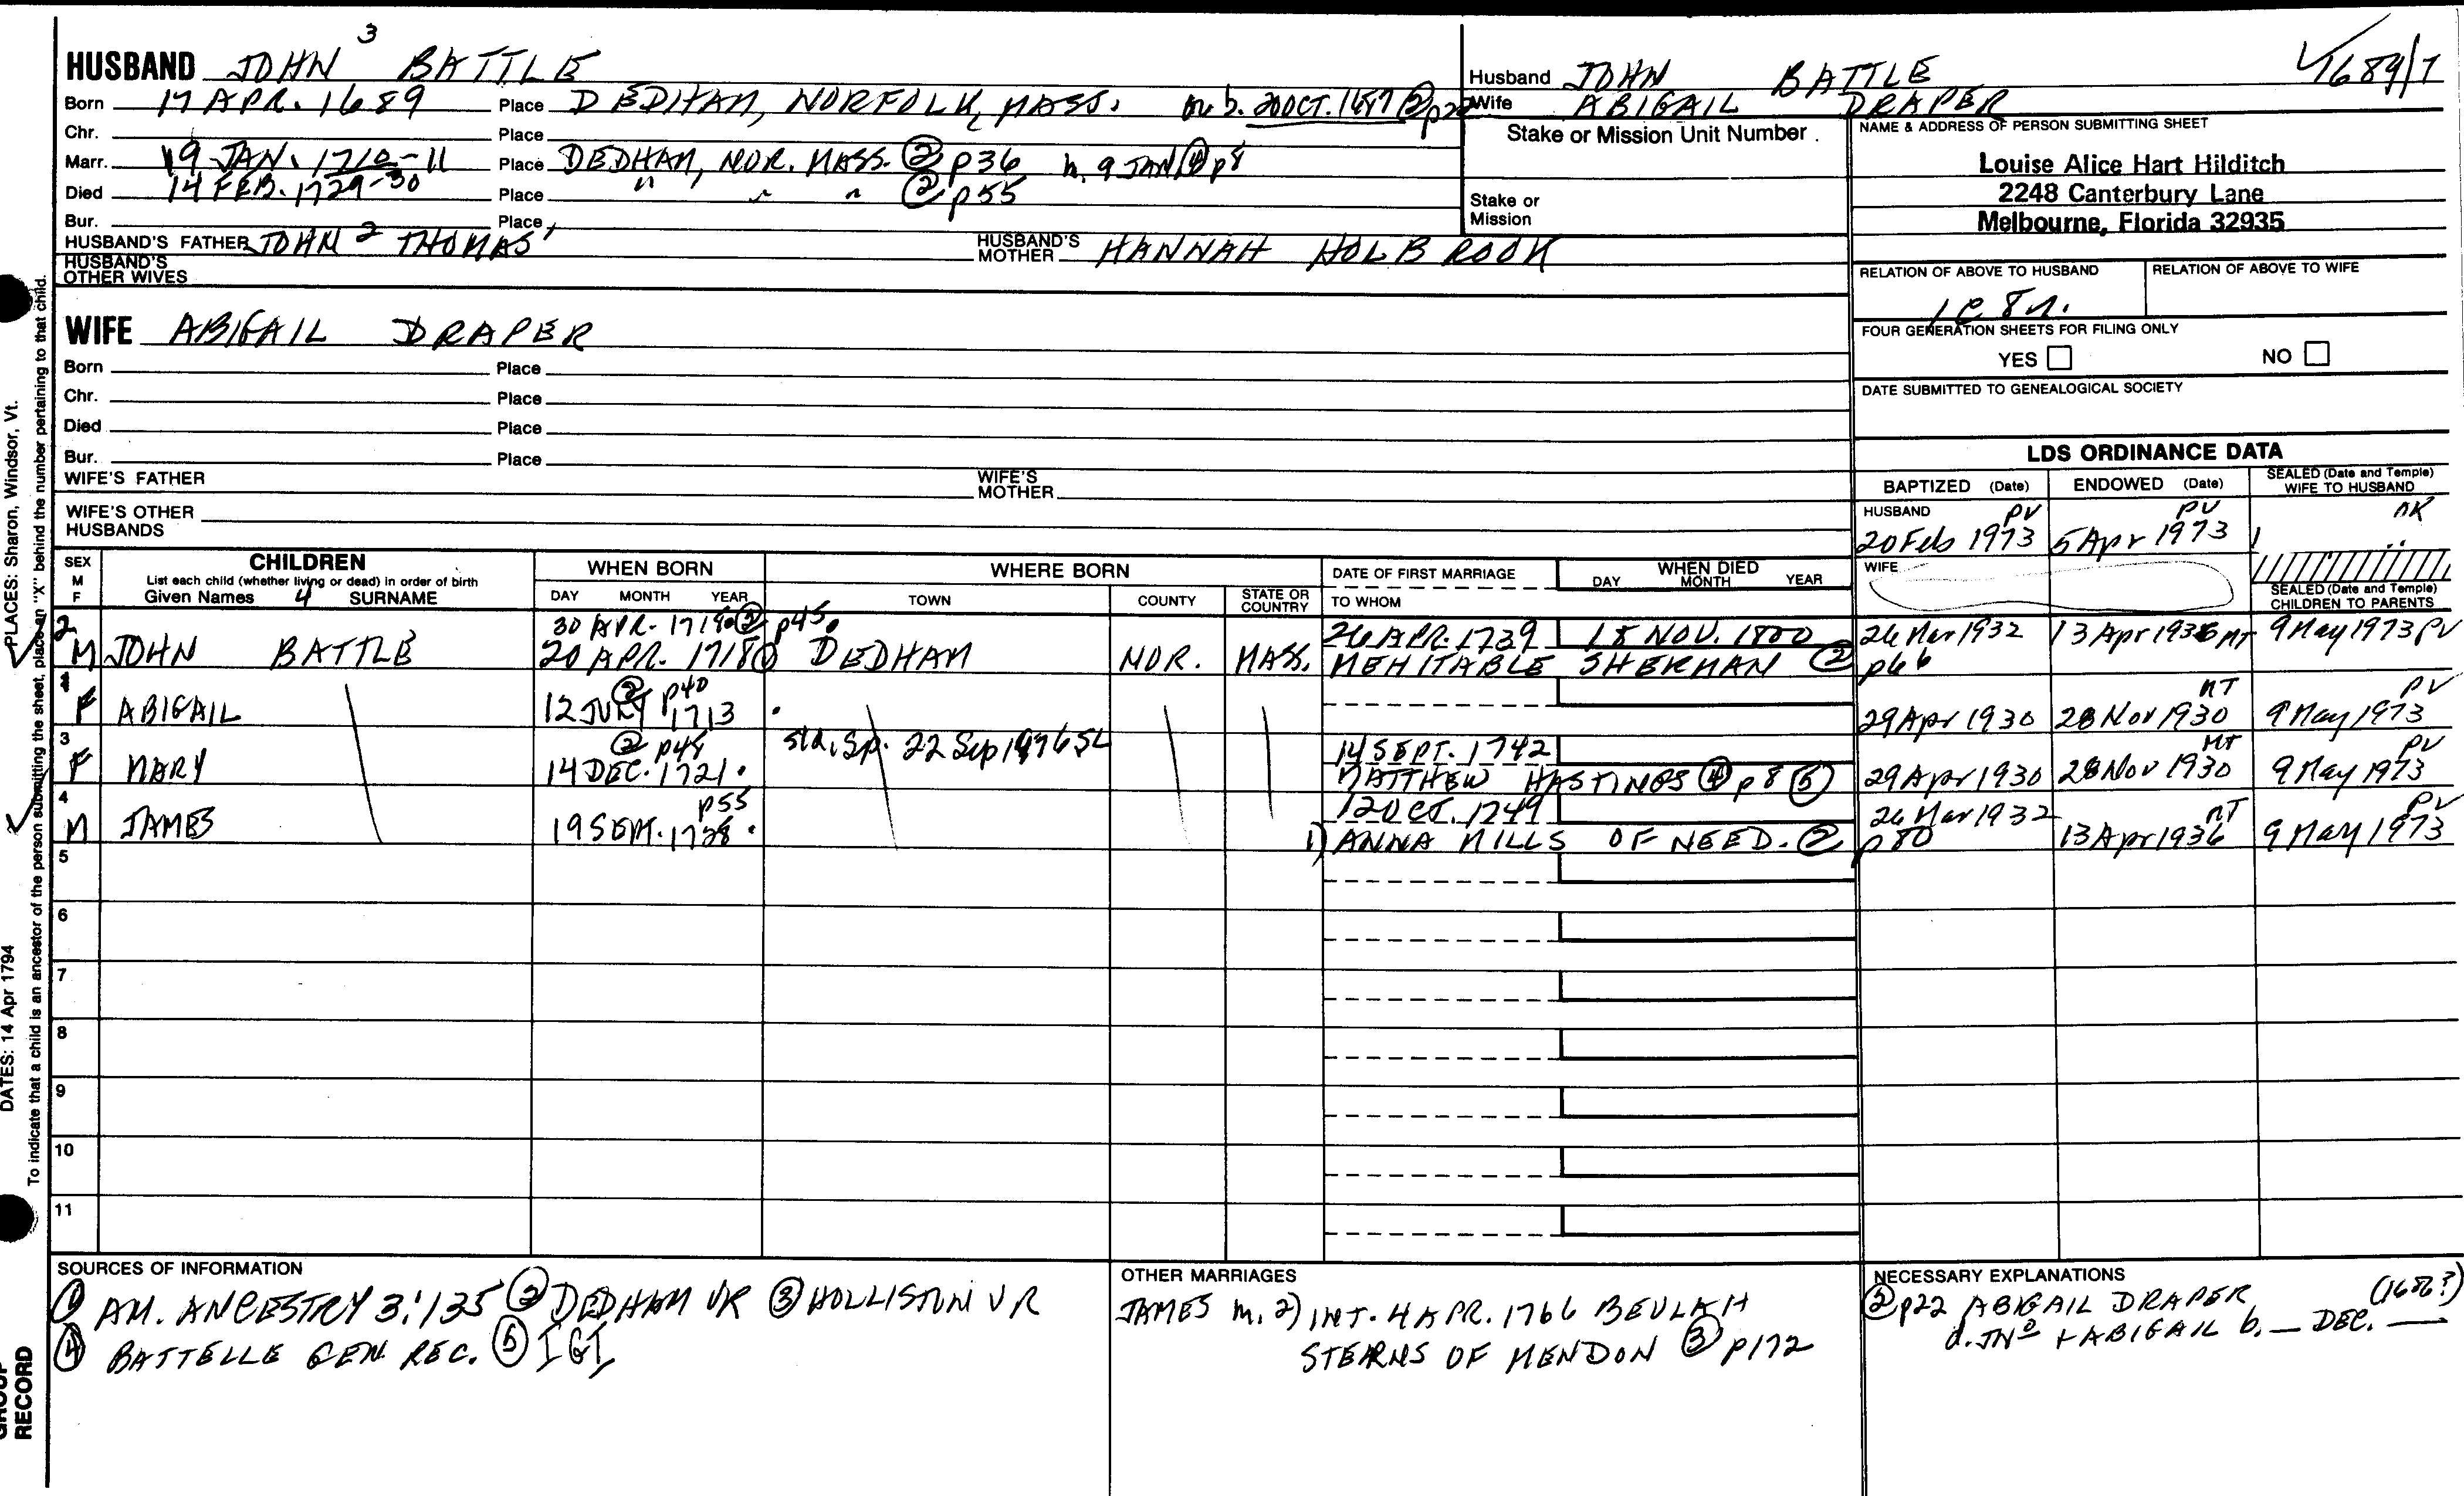 3
HUSBAND JOHN BATTLE
Born 17 APR. 1689 Place DEDHAM, NORFOLK, MASS. b. 20 OCT. 1687 ② p22
Chr. Place
Marr. 19 JAN. 1710-11 Place DEDHAM, NOR. MASS. ② p36 9 JAN ④ p8
Died 14 FEB. 1729-30 Place " " " ② p55
Bur. Place
HUSBAND'S FATHER JOHN 2 THOMAS' HUSBAND'S MOTHER HANNAH HOLBROOK
HUSBAND'S OTHER WIVES
WIFE ABIGAIL DRAPER
Born Place
Chr. Place
Died Place
Bur. Place
WIFE'S FATHER WIFE'S MOTHER
WIFE'S OTHER HUSBANDS
Husband JOHN BATTLE 1689/7
Wife ABIGAIL DRAPER
Stake or Mission Unit Number .
Stake or Mission
NAME & ADDRESS OF PERSON SUBMITTING SHEET
Louise Alice Hart Hilditch
2248 Canterbury Lane
Melbourne, Florida 32935
RELATION OF ABOVE TO HUSBAND RELATION OF ABOVE TO WIFE
FOUR GENERATION SHEETS FOR FILING ONLY
YES NO
DATE SUBMITTED TO GENEALOGICAL SOCIETY
LDS ORDINANCE DATA
BAPTIZED (Date) ENDOWED (Date) SEALED (Date and Temple) WIFE TO HUSBAND
HUSBAND PV PV
20 Feb 1973 5 Apr 1973
WIFE
SEALED (Date and Temple) CHILDREN TO PARENTS
SEX M F
CHILDREN
List each child (whether living or dead) in order of birth
Given Names 4 SURNAME
WHEN BORN
DAY MONTH YEAR
WHERE BORN
TOWN COUNTY STATE OR COUNTRY
DATE OF FIRST MARRIAGE
TO WHOM
WHEN DIED
DAY MONTH YEAR
2 30 APR. 1718 ② p45. 26 APR. 1739 18 NOV. 1800 26 Mar 1932 13 Apr 1936 MT 9 May 1973 PV
M JOHN BATTLE 20 APR. 1718 ① DEDHAM NOR. MASS. MEHITABLE SHERMAN ② p66
1 ② p40 MT PV
F ABIGAIL 12 JULY 1713 . 29 Apr 1930 28 Nov 1930 9 May 1973
3 ② p48 22 Sep 1976 SL 14 SEPT. 1742 MT PV
F MARY 14 DEC. 1721 . MATTHEW HASTINGS ④ p8 ⑤ 29 Apr 1930 28 Nov 1930 9 May 1973
4 p55 12 OCT. 1749 26 Mar 1932 MT PV
M JAMES 19 SEPT. 1728 . 1) ANNA MILLS OF NEED. ② p80 13 Apr 1936 9 May 1973
5
6
7
8
9
10
11
SOURCES OF INFORMATION
① AM. ANCESTRY 3:135 ② DEDHAM VR ③ HOLLISTON VR
④ BATTELLE GEN. REC. ⑤ IGI
OTHER MARRIAGES
JAMES m. 2) INT. 4 APR. 1766 BEULAH
STEARNS OF MENDON ③ p172
NECESSARY EXPLANATIONS
② p22 ABIGAIL DRAPER
d. JNº + ABIGAIL b. — DEC. —
PLACES: Sharon, Windsor, Vt.
DATES: 14 Apr 1794
To indicate that a child is an ancestor of the person submitting the sheet, place an "X" behind the number pertaining to that child.
GROUP RECORD